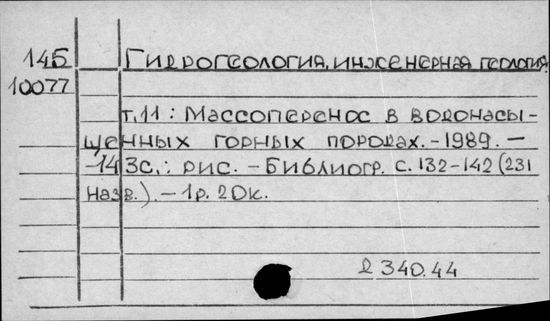 14Б Гидрогеология, инженерная геология.
10077
т.11: Массоперенос в водонасы-
щенных горных породах. - 1989. -
- 143с.: рис. - Библиогр. с. 132-142 (231
назв.). - 1р. 20к.
2 340.44